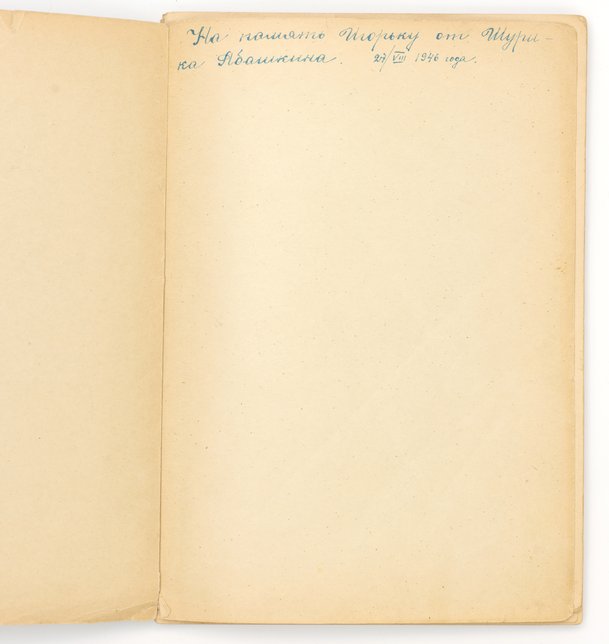 На память Игорьку от Шури-
ка Абашкина. 27/VIII 1946 года.